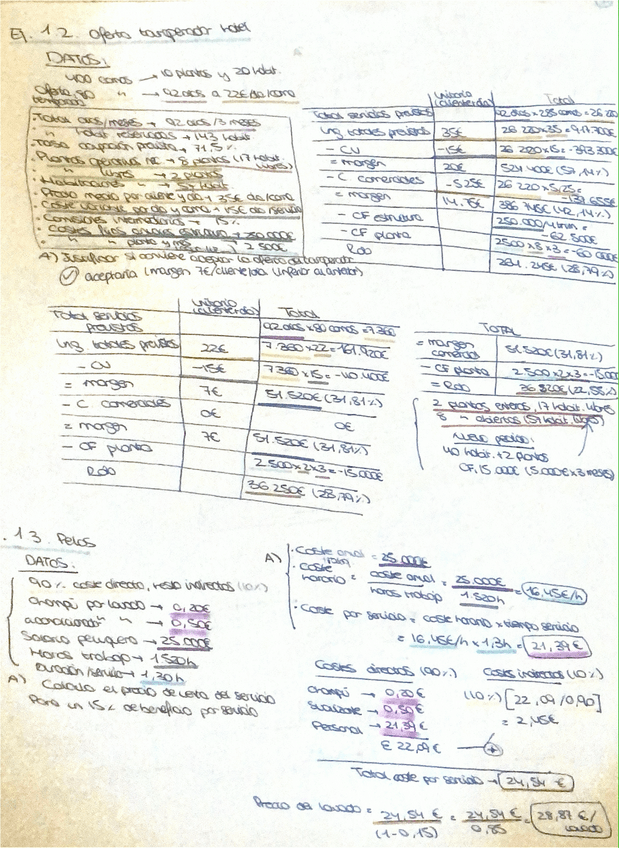 Ej. 1.2. Oferta touroperador hotel
DATOS:
400 camas → 10 plantas y 20 habit.
Oferta 90 " → 92 días a 22€ día/cama
temporada
· Total días/meses → 92 días/3 meses
· " habit. reservadas → 143 habit.
· Tasa ocupación prevista → 71,5%
· Plantas operativas nec → 8 plantas (17 habit. libres)
· " libres → 2 plantas
· Habitaciones " → 57 habit.
· Precio medio por cliente y día → 35€ día/cama
· Coste variable día y cama → 15€ día/servicio
· Comisiones intermediarios → 15%
· Costes fijos anuales estructura → 250.000€
· " " planta y mes → 2.500€
A) Justificar si conviene aceptar la oferta del touroperador
aceptaría (margen 7€/cliente/día (inferior al anterior)
Unitario (cliente/día) Total
Total servicios previstos 92 días x 285 camas = 26.220
Ing. totales previstos 35€ 26.220 x 35 = 917.700€
- CV -15€ 26.220 x 15 = -393.300€
= margen 20€ 524.400€ (57,14%)
- C comerciales -5,25€ 26.220 x 5,25 = -137.655€
= margen 14,75€ 386.745€ (42,14%)
- CF estructura 250.000/4 trim = -62.500€
- CF planta 2500 x 8 x 3 = -60.000€
Rdo 264.245€ (28,79%)
Unitario (cliente/día) Total
Total servicios previstos 92 días x 80 camas = 7.360
Ing totales previstos 22€ 7.360 x 22 = 161.920€
- CV -15€ 7.360 x 15 = -110.400€
= margen 7€ 51.520€ (31,81%)
- C. comerciales 0€ 0€
= margen 7€ 51.520€ (31,81%)
- CF planta 2.500 x 2 x 3 = -15.000€
Rdo 36.250€ (28,79%)
TOTAL
= margen comercial 51.520€ (31,81%)
- CF planta 2.500 x 2 x 3 = -15.000
= Rdo 36.520€ (22,55%)
2 plantas enteras, 17 habit. libres
8 " abiertas (57 habit. libres)
Nuevo pedido:
40 habit. → 2 plantas
CF. 15.000€ (5.000€ x 3 meses)
1.3. Pelos
DATOS:
90% coste directo, resto indirectos (10%)
Champú por lavado → 0,20€
acondicionador " " → 0,50€
Salario peluquero → 25.000€
Horas trabajo → 1.520h
Duración/servicio → 1,30h
A) Calcula el precio de venta del servicio
Para un 15% de beneficio por servicio
A) · Coste anual = 25.000€
· Coste horario = coste anual / horas trabajo = 25.000€ / 1.520h = 16,45€/h
· Coste por servicio = coste horario x tiempo servicio
= 16,45€/h x 1,3h = 21,39€
Costes directos (90%) Costes indirectos (10%)
Champú → 0,20€ (10%) [22,09/0,90]
Suavizante → 0,50€ = 2,45€
Personal → 21,39€
Σ 22,09€ +
Total coste por servicio → 24,54€
Precio del lavado = 24,54€ / (1-0,15) = 24,54€ / 0,85 = 28,87€/lavado